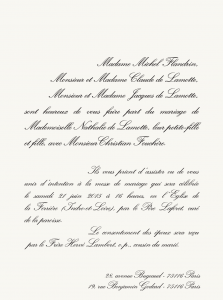 Madame Michel Flandrin,
Monsieur et Madame Claude de Lamotte,
Monsieur et Madame Jacques de Lamotte,
sont heureux de vous faire part du mariage de
Mademoiselle Nathalie de Lamotte, leur petite-fille
et fille, avec Monsieur Christian
Ils vous prient d'assister ou de vous
unir d'intention à la messe de mariage qui sera célébrée
le samedi 21 juin 2015 à 16 heures en l'Église de
la Ferrière (Indre-et-Loire), par le Père curé
de la paroisse.
Le consentement des époux sera reçu
par le Frère Hervé Lambert, o.p., cousin du marié.
28, avenue Bugeaud - 75116 Paris
19, rue Benjamin Godard - 75116 Paris